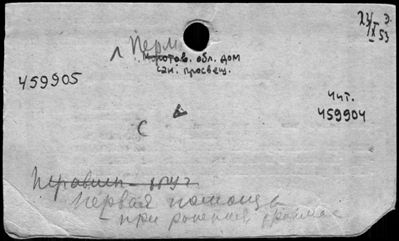 23/IX 53 Э.
л Перм
Молотов. обл. дом
сан. просвещ.
459905
Чит.
459904
С
Первая помощь
при ранениях